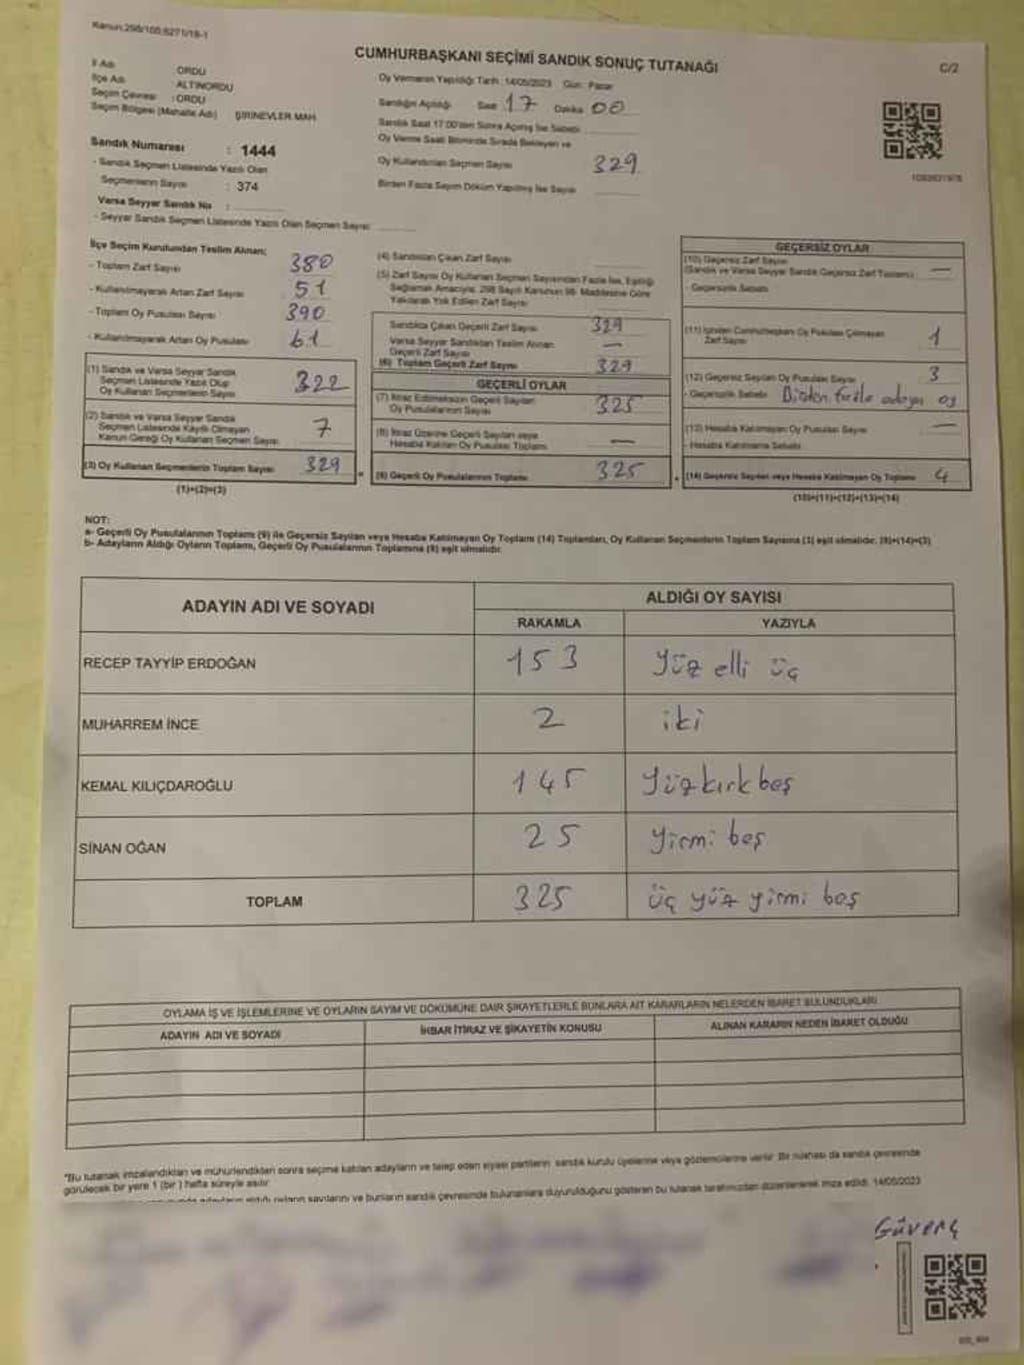 Kanun:298/105;6271/18-1
CUMHURBAŞKANI SEÇİMİ SANDIK SONUÇ TUTANAĞI
C/2
İl Adı : ORDU
İlçe Adı : ALTINORDU
Seçim Çevresi : ORDU
Seçim Bölgesi (Mahalle Adı) ŞİRİNEVLER MAH.
Sandık Numarası : 1444
- Sandık Seçmen Listesinde Yazılı Olan
Seçmenlerin Sayısı : 374
Varsa Seyyar Sandık No :
- Seyyar Sandık Seçmen Listesinde Yazılı Olan Seçmen Sayısı
Oy Vermenin Yapıldığı Tarih: 14/05/2023 Gün: Pazar
Sandığın Açıldığı Saat 17 Dakika 00
Sandık Saat 17:00'den Sonra Açılmış İse Sebebi
Oy Verme Saati Bitiminde Sırada Bekleyen ve
Oy Kullandırılan Seçmen Sayısı 329
Birden Fazla Sayım Döküm Yapılmış İse Sayısı
İlçe Seçim Kurulundan Teslim Alınan;
- Toplam Zarf Sayısı 380
- Kullanılmayarak Artan Zarf Sayısı 51
- Toplam Oy Pusulası Sayısı 390
- Kullanılmayarak Artan Oy Pusulası 61
(1) Sandık ve Varsa Seyyar Sandık
Seçmen Listesinde Yazılı Olup
Oy Kullanan Seçmenlerin Sayısı 322
(2) Sandık ve Varsa Seyyar Sandık
Seçmen Listesinde Kayıtlı Olmayan
Kanun Gereği Oy Kullanan Seçmen Sayısı 7
(3) Oy Kullanan Seçmenlerin Toplam Sayısı 329
(1)+(2)=(3)
(4) Sandıktan Çıkan Zarf Sayısı
(5) Zarf Sayısı Oy Kullanan Seçmen Sayısından Fazla İse, Eşitliği
Sağlamak Amacıyla, 298 Sayılı Kanunun 98. Maddesine Göre
Yakılarak Yok Edilen Zarf Sayısı
Sandıkta Çıkan Geçerli Zarf Sayısı 329
Varsa Seyyar Sandıktan Teslim Alınan
Geçerli Zarf Sayısı —
(6) Toplam Geçerli Zarf Sayısı 329
GEÇERLİ OYLAR
(7) İtiraz Edilmeksizin Geçerli Sayılan
Oy Pusulalarının Sayısı 325
(8) İtiraz Üzerine Geçerli Sayılan veya
Hesaba Katılan Oy Pusulası Toplamı —
(9) Geçerli Oy Pusulalarının Toplamı 325
GEÇERSİZ OYLAR
(10) Geçersiz Zarf Sayısı
(Sandık ve Varsa Seyyar Sandık Geçersiz Zarf Toplamı) —
- Geçersizlik Sebebi
(11) İçinden Cumhurbaşkanı Oy Pusulası Çıkmayan
Zarf Sayısı 1
(12) Geçersiz Sayılan Oy Pusulası Sayısı 3
- Geçersizlik Sebebi Birden fazla adaya oy
(13) Hesaba Katılmayan Oy Pusulası Sayısı —
- Hesaba Katılmama Sebebi
(14) Geçersiz Sayılan veya Hesaba Katılmayan Oy Toplamı 4
(10)+(11)+(12)+(13)=(14)
NOT:
a- Geçerli Oy Pusulalarının Toplamı (9) ile Geçersiz Sayılan veya Hesaba Katılmayan Oy Toplamı (14) Toplamları, Oy Kullanan Seçmenlerin Toplam Sayısına (3) eşit olmalıdır. (9)+(14)=(3)
b- Adayların Aldığı Oyların Toplamı, Geçerli Oy Pusulalarının Toplamına (9) eşit olmalıdır.
ADAYIN ADI VE SOYADI
ALDIĞI OY SAYISI
RAKAMLA YAZIYLA
RECEP TAYYİP ERDOĞAN 153 Yüz elli üç
MUHARREM İNCE 2 iki
KEMAL KILIÇDAROĞLU 145 Yüzkırkbeş
SİNAN OĞAN 25 Yirmi beş
TOPLAM 325 üç yüz yirmi beş
OYLAMA İŞ VE İŞLEMLERİNE VE OYLARIN SAYIM VE DÖKÜMÜNE DAİR ŞİKAYETLERLE BUNLARA AİT KARARLARIN NELERDEN İBARET BULUNDUKLARI
ADAYIN ADI VE SOYADI İHBAR İTİRAZ VE ŞİKAYETİN KONUSU ALINAN KARARIN NEDEN İBARET OLDUĞU
*Bu tutanak imzalandıktan ve mühürlendikten sonra seçime katılan adayların ve talep eden siyasi partilerin sandık kurulu üyelerine veya gözlemcilerine verilir. Bir nüshası da sandık çevresinde
görülecek bir yere 1 (bir) hafta süreyle asılır.
adayların aldığı oyların sayılarını ve bunların sandık çevresinde bulunanlara duyurulduğunu gösteren bu tutanak tarafımızdan düzenlenerek imza edildi. 14/05/2023
Güvenç